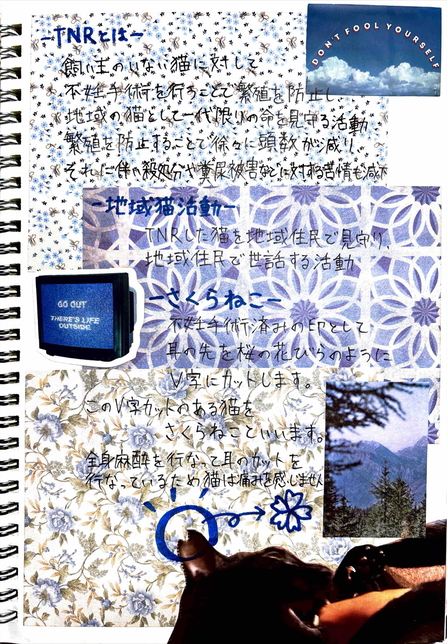 -TNRとは-
DON'T FOOL YOURSELF
飼い主のいない猫に対して
不妊手術を行うことで繁殖を防止し、
地域の猫として一代限りの命を見守る活動
繁殖を防止することで徐々に頭数が減り、
それに伴い殺処分や糞尿被害などに対する苦情も減少
-地域猫活動-
TNRした猫を地域住民で見守り、
地域住民で世話する活動
GO OUT
THERE'S LIFE
OUTSIDE
-さくらねこ-
不妊手術済みの印として
耳の先を桜の花びらのように
V字にカットします。
このV字カットのある猫を
さくらねこといいます。
全身麻酔を行なって耳のカットを
行なっているため猫は痛みを感じません